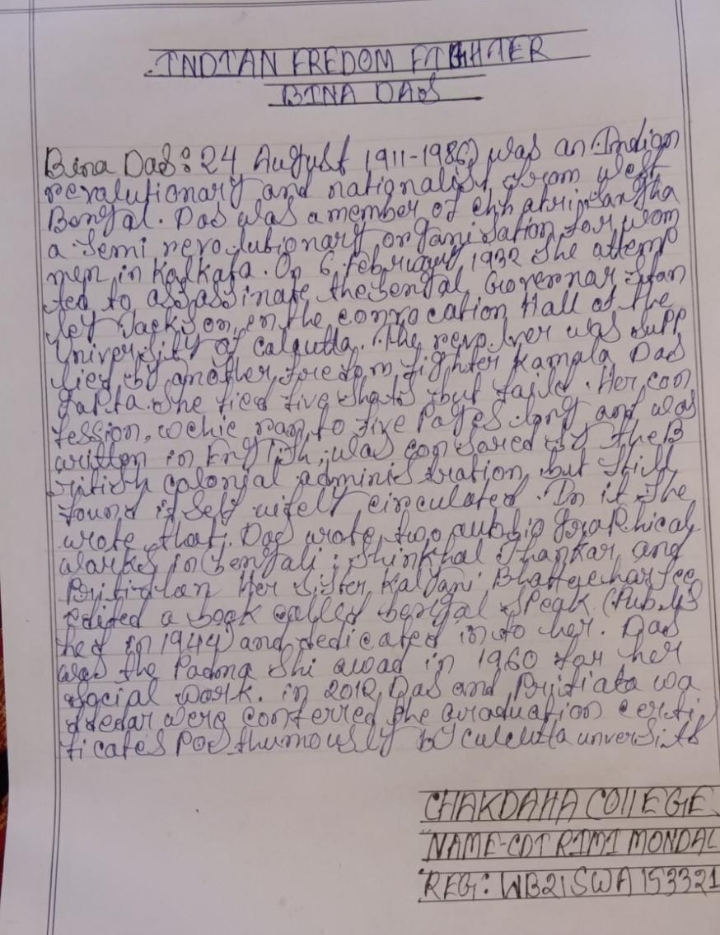 INDIAN FREDOM FIGHTER
BINA DAS
Bina Das: 24 August 1911-1986) was an Indian
revolutionary and nationalist from west
Bengal. Das was a member of chhatri Sangha
a semi revolutionary organisation for wom
men in Kalkata. On 6 February 1932 she attemp
ted to assassinate the Bengal Governar stan
ley Jackson, in the convocation Hall of the
University of Calcutta. The revolver was supp
lied by another freedom fighter Kamala Das
Gupta. She fied five shots but faild. Her con
fession, wchic ran to five Pages long and was
written in English, was consored by the B
ritish colonial administration, but still
found it self widely circulated. In it she
wrote that. Das wrote two autobio graphical
warkes in Bengali: Shinkhal Jhankar and
Pritidhan Her sister Kalyani Bhattacharjee
edited a book called bengal speak (Publis
hed in 1944) and dedicated in to her. Das
was the Padma Shi awad in 1960 for her
social work. in 2012, Das and Pritilata wa
ddedar were conferred the graduation certi
ficates Posthumously by Culcutta unversits
CHAKDAHA COLLEGE
NAME-CDT RIMI MONDAL
REG: WB21SWA153321